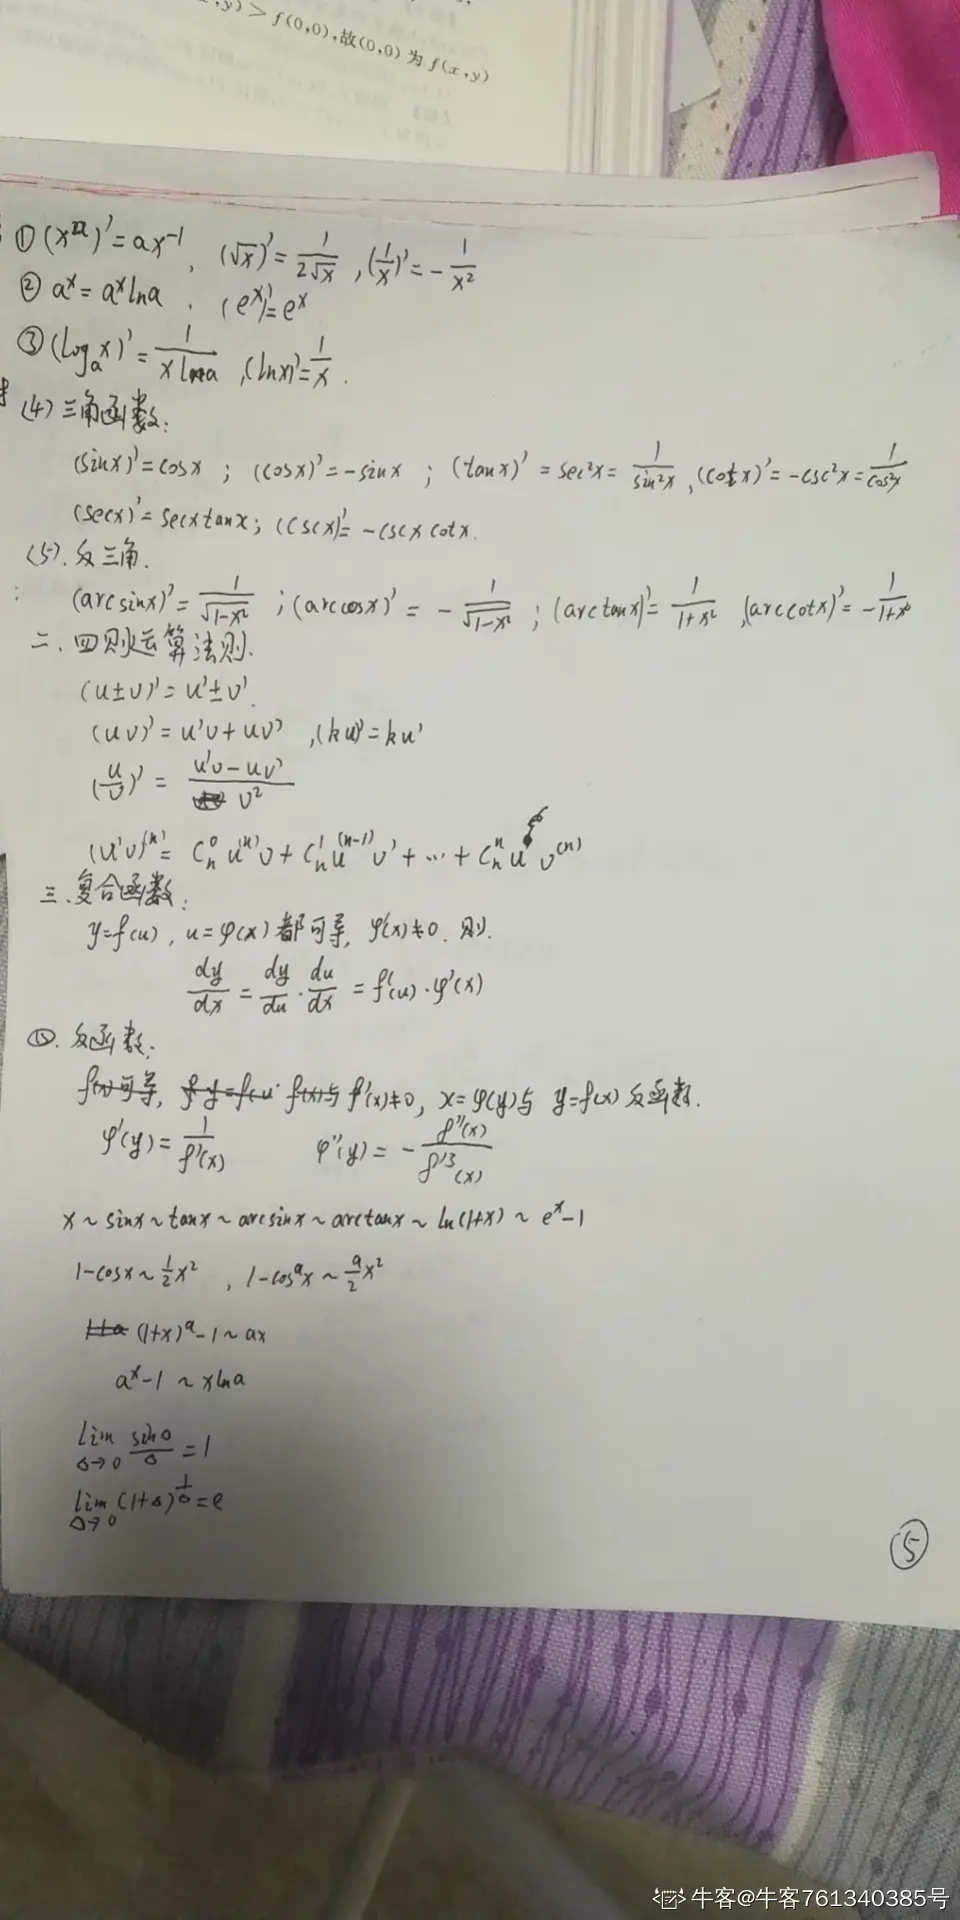 ,y)>f(0,0),故(0,0)为f(x,y)
①(x^a)'=ax^-1, (√x)'=1/(2√x), (1/x)'=-1/x²
② a^x=a^x lna, (e^x)'=e^x
③(log_a x)'=1/(xlna), (lnx)'=1/x.
(4)三角函数:
(sinx)'=cosx; (cosx)'=-sinx; (tanx)'=sec²x=1/sin²x, (cotx)'=-csc²x=1/cos²x
(secx)'=secxtanx; (cscx)'=-cscxcotx.
(5).反三角.
(arcsinx)'=1/√(1-x²); (arccosx)'=-1/√(1-x²); (arctanx)'=1/(1+x²), (arccotx)'=-1/(1+x²)
二、四则运算法则.
(u±v)'=u'±v'.
(uv)'=u'v+uv', (ku)'=ku'
(u/v)'=(u'v-uv')/v²
(u'v)^(n)=C_n^0 u^(n)v+C_n^1 u^(n-1)v'+…+C_n^n u v^(n)
三、复合函数:
y=f(u), u=φ(x)都可导, φ'(x)≠0. 则.
dy/dx=dy/du·du/dx=f'(u)·φ'(x)
四. 反函数:
f(x)可导, f y=f(u· f(x)与 f'(x)≠0, x=φ(y)与 y=f(x)反函数.
φ'(y)=1/f'(x) φ''(y)=-f''(x)/f'³(x)
x~sinx~tanx~arcsinx~arctanx~ln(1+x)~e^x-1
1-cosx~1/2x², 1-cos^a x~a/2x²
(1+x)^a-1~ax
a^x-1~xlna
lim Δ→0 sinΔ/Δ=1
lim Δ→0 (1+Δ)^(1/Δ)=e
⑤
牛客@牛客761340385号